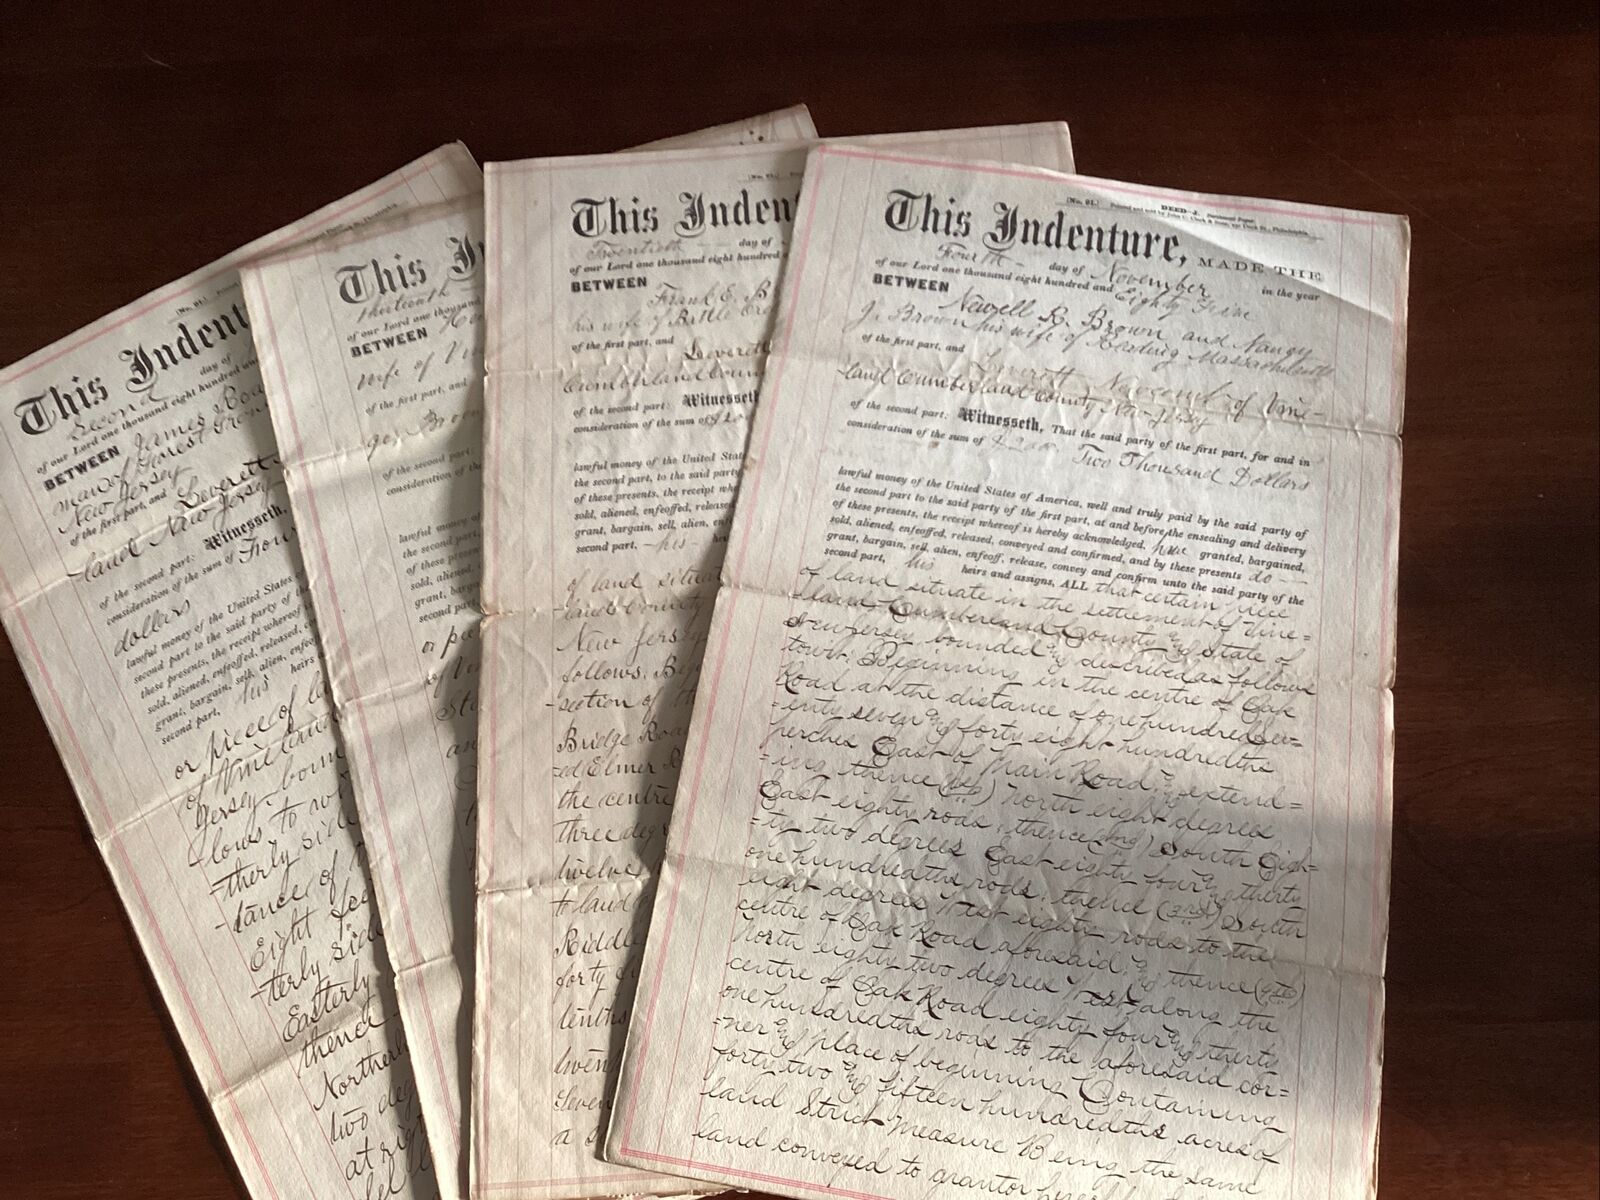 This Indent
Second day of
of our Lord one thousand eight hundred
BETWEEN James
man of Forest Grove
New Jersey
of the first part, and Leverett
land New Jersey
of the second part: Witnesseth,
consideration of the sum of Four
dollars
lawful money of the United States
second part to the said party of the
these presents, the receipt whereof is
sold, aliened, enfeoffed, released, co
grant, bargain, sell, alien, enfeoff
second part, his heirs
or piece of la
of Vineland
Jersey, boun
lows to wit
therly side
tance of
Eight fee
terly side
Easterly
thence
Northerl
two deg
at righ
This In
Thirteenth
of our Lord one thousand
BETWEEN
wife of Vin
of the first part, and
of the second part:
consideration of the
lawful money of
the second part
of these presen
sold, aliened,
grant, bargain
second part
or pie
of Vin
Sta
an
This Inden
Twentieth day of
of our Lord one thousand eight hundred a
BETWEEN Frank E. B
his wife of Battle Cre
of the first part, and Leverett
Cumberland Coun
of the second part: Witnesseth
consideration of the sum of
lawful money of the United Stat
the second part, to the said part
of these presents, the receipt whe
sold, aliened, enfeoffed, released
grant, bargain, sell, alien, enf
second part, his hei
of land situat
land County
New Jersey
follows. Beg
-section of th
Bridge Road
ed Elmer R
the centre
three degr
twelve
to land
Riddle
forty
tenths
twen
Eleven
a s
(No. 91.) DEED—J. Parchment Paper.
Printed and sold by John C. Clark & Sons, 230 Dock St., Philadelphia.
This Indenture, MADE THE
Fourth day of November in the year
of our Lord one thousand eight hundred and Eighty Five
BETWEEN Newell R. Brown and Nancy
J. Brown his wife of Reading Massachusetts
of the first part, and Leverett Newcomb of Vine-
land Cumberland County New Jersey
of the second part: Witnesseth, That the said party of the first part, for and in
consideration of the sum of $2000 Two Thousand Dollars
lawful money of the United States of America, well and truly paid by the said party of
the second part to the said party of the first part, at and before the ensealing and delivery
of these presents, the receipt whereof is hereby acknowledged, have granted, bargained,
sold, aliened, enfeoffed, released, conveyed and confirmed, and by these presents do
grant, bargain, sell, alien, enfeoff, release, convey and confirm unto the said party of the
second part, his heirs and assigns, ALL that certain piece
of land situate in the settlement of Vine=
=land Cumberland County & State of
New Jersey bounded & described as follows
towit: Beginning in the centre of Oak
Road at the distance of one hundred sev=
=enty seven & forty eight hundredths
perches East of Main Road; & extend=
=ing thence (1st) North eight degrees
East eighty rods; thence (2nd) South Eigh=
=ty two degrees East eighty four & thirty
one hundredths rods; thence (3rd) South
eight degrees West eighty rods to the
centre of Oak Road aforesaid; & thence (4th)
North eighty two degrees West along the
centre of Oak Road eighty four & thirty
one hundredths rods to the aforesaid cor=
=ner & place of beginning Containing
forty two & fifteen hundredths acres of
land Strict measure Being the same
land conveyed to grantor